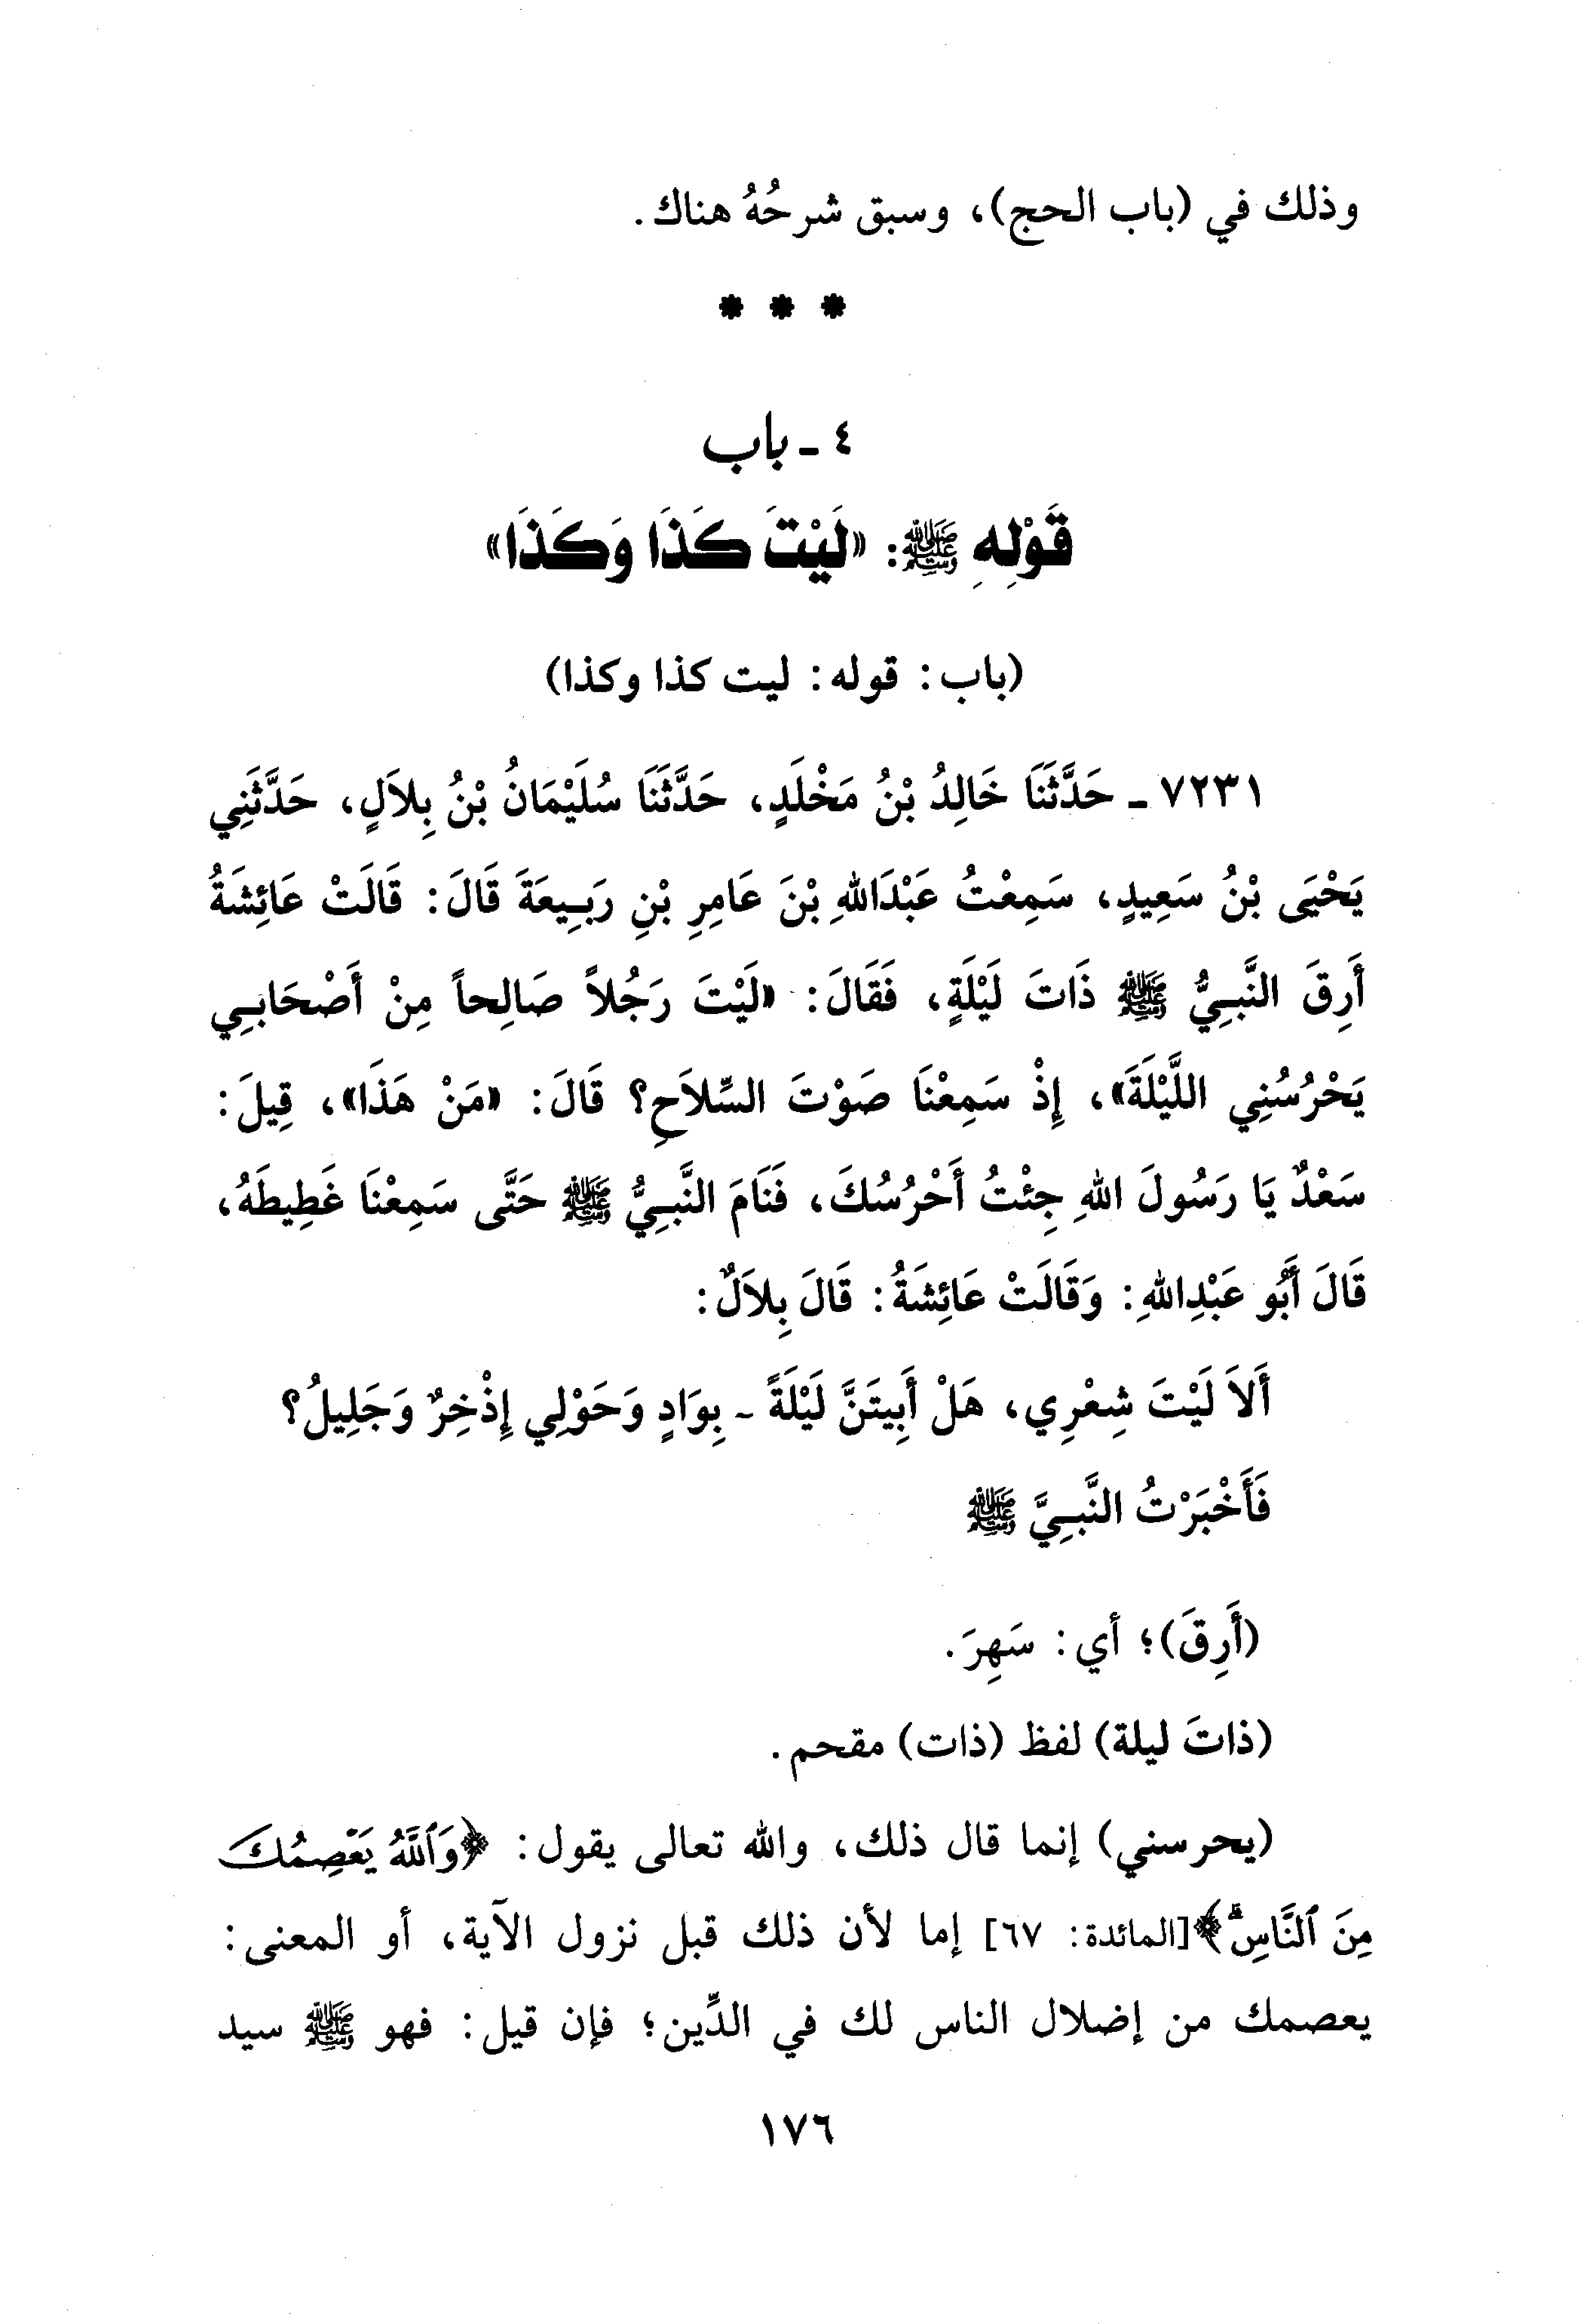 وذلك في (باب الحج)، وسبق شرحُهُ هناك.
* * *
٤ ـ باب
قَوْلِهِ ﷺ: «لَيْتَ كَذَا وَكَذَا»
(باب: قوله: ليت كذا وكذا)
٧٢٣١ ـ حَدَّثَنَا خَالِدُ بْنُ مَخْلَدٍ، حَدَّثَنَا سُلَيْمَانُ بْنُ بِلاَلٍ، حَدَّثَنِي
يَحْيَى بْنُ سَعِيدٍ، سَمِعْتُ عَبْدَاللهِ بْنَ عَامِرِ بْنِ رَبِيعَةَ قَالَ: قَالَتْ عَائِشَةُ
أَرِقَ النَّبِيُّ ﷺ ذَاتَ لَيْلَةٍ، فَقَالَ: «لَيْتَ رَجُلاً صَالِحاً مِنْ أَصْحَابِي
يَحْرُسُنِي اللَّيْلَةَ»، إِذْ سَمِعْنَا صَوْتَ السِّلاَحِ؟ قَالَ: «مَنْ هَذَا»، قِيلَ:
سَعْدٌ يَا رَسُولَ اللهِ جِئْتُ أَحْرُسُكَ، فَنَامَ النَّبِيُّ ﷺ حَتَّى سَمِعْنَا غَطِيطَهُ،
قَالَ أَبُو عَبْدِاللهِ: وَقَالَتْ عَائِشَةُ: قَالَ بِلاَلٌ:
أَلاَ لَيْتَ شِعْرِي، هَلْ أَبِيتَنَّ لَيْلَةً ـ بِوَادٍ وَحَوْلِي إِذْخِرٌ وَجَلِيلُ؟
فَأَخْبَرْتُ النَّبِيَّ ﷺ
(أَرِقَ)؛ أي: سَهِرَ.
(ذاتَ ليلة) لفظ (ذات) مقحم.
(يحرسني) إنما قال ذلك، والله تعالى يقول: ﴿وَٱللَّهُ يَعْصِمُكَ
مِنَ ٱلنَّاسِۗ﴾[المائدة: ٦٧] إما لأن ذلك قبل نزول الآية، أو المعنى:
يعصمك من إضلال الناس لك في الدِّين؛ فإن قيل: فهو ﷺ سيد
١٧٦